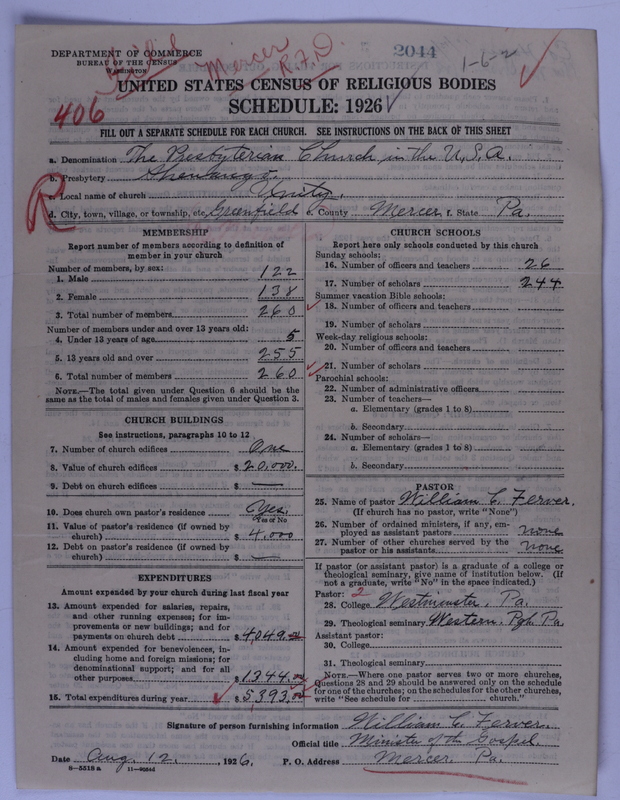 DEPARTMENT OF COMMERCE
BUREAU OF THE CENSUS
WASHINGTON
Mercer
R.F.D.
2044
1-6-2
UNITED STATES CENSUS OF RELIGIOUS BODIES
SCHEDULE: 1926
406
FILL OUT A SEPARATE SCHEDULE FOR EACH CHURCH. SEE INSTRUCTIONS ON THE BACK OF THIS SHEET
a. Denomination The Presbyterian Church in the U.S.A.
b. Presbytery Shenango
c. Local name of church Unity.
R
d. City, town, village, or township, etc. Greenfield e. County Mercer f. State Pa.
MEMBERSHIP
Report number of members according to definition of
member in your church
Number of members, by sex:
1. Male 122
2. Female 138
3. Total number of members 260
Number of members under and over 13 years old:
4. Under 13 years of age 5
5. 13 years old and over 255
6. Total number of members 260
NOTE.—The total given under Question 6 should be the
same as the total of males and females given under Question 3.
CHURCH BUILDINGS
See instructions, paragraphs 10 to 12
7. Number of church edifices One
8. Value of church edifices $ 20,000.
9. Debt on church edifices $ —
10. Does church own pastor's residence Yes.
Yes or No
11. Value of pastor's residence (if owned by
church) $ 4,000
12. Debt on pastor's residence (if owned by
church) $ —
EXPENDITURES
Amount expended by your church during last fiscal year
13. Amount expended for salaries, repairs,
and other running expenses; for im-
provements or new buildings; and for
payments on church debt $ 4049.
14. Amount expended for benevolences, in-
cluding home and foreign missions; for
denominational support; and for all
other purposes $ 1344.00
15. Total expenditures during year $ 5393.00
CHURCH SCHOOLS
Report here only schools conducted by this church
Sunday schools:
16. Number of officers and teachers 26
17. Number of scholars 244
Summer vacation Bible schools:
18. Number of officers and teachers
19. Number of scholars
Week-day religious schools:
20. Number of officers and teachers
21. Number of scholars
Parochial schools:
22. Number of administrative officers
23. Number of teachers—
a. Elementary (grades 1 to 8)
b. Secondary
24. Number of scholars—
a. Elementary (grades 1 to 8)
b. Secondary
PASTOR
25. Name of pastor William C. Ferver.
(If church has no pastor, write "None")
26. Number of ordained ministers, if any, em-
ployed as assistant pastors none
27. Number of other churches served by the
pastor or his assistants none
If pastor (or assistant pastor) is a graduate of a college or
theological seminary, give name of institution below. (If
not a graduate, write "No" in the space indicated.)
Pastor: 2
28. College Westminster, Pa.
29. Theological seminary Western. Pgh. Pa.
Assistant pastor:
30. College
31. Theological seminary
NOTE.—Where one pastor serves two or more churches,
Questions 28 and 29 should be answered only on the schedule
for one of the churches; on the schedules for the other churches,
write "See schedule for church."
Signature of person furnishing information William C. Ferver.
Official title Minister of the Gospel.
Date Aug. 12, 1926. P. O. Address Mercer, Pa.
8—5519 a